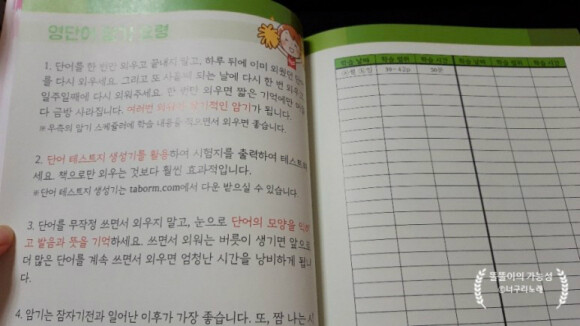 영단어 암기 요령
1. 단어를 한 번만 외우고 끝내지 말고, 하루 뒤에 이미 외웠던
를 다시 외우세요. 그리고 또 사흘째 되는 날에 다시 한 번 외우고
일주일째에 다시 외워주세요. 한 번만 외우면 짧은 기억에만
다 금방 사라집니다. 여러번 외워야 장기적인 암기가 됩니다.
※우측의 암기 스케줄러에 학습 내용을 적으면서 외우면 좋습니다.
2. 단어 테스트지 생성기를 활용하여 시험지를 출력하여 테스트
세요. 책으로만 외우는 것보다 훨씬 효과적입니다.
※단어 테스트지 생성기는 taborm.com에서 다운 받으실 수 있습니다
3. 단어를 무작정 쓰면서 외우지 말고, 눈으로 단어의 모양을
고 발음과 뜻을 기억하세요. 쓰면서 외우는 버릇이 생기면 앞으로
더 많은 단어를 계속 쓰면서 외우면 엄청난 시간을 낭비하게 됩니
다.
4. 암기는 잠자기전과 일어난 이후가 가장 좋습니다. 또, 짬 나는
학습 날짜 학습 범위 학습 시간 학습 날짜 학습 범위 학습 시간
똘똘이의 가능성
©너구리노래